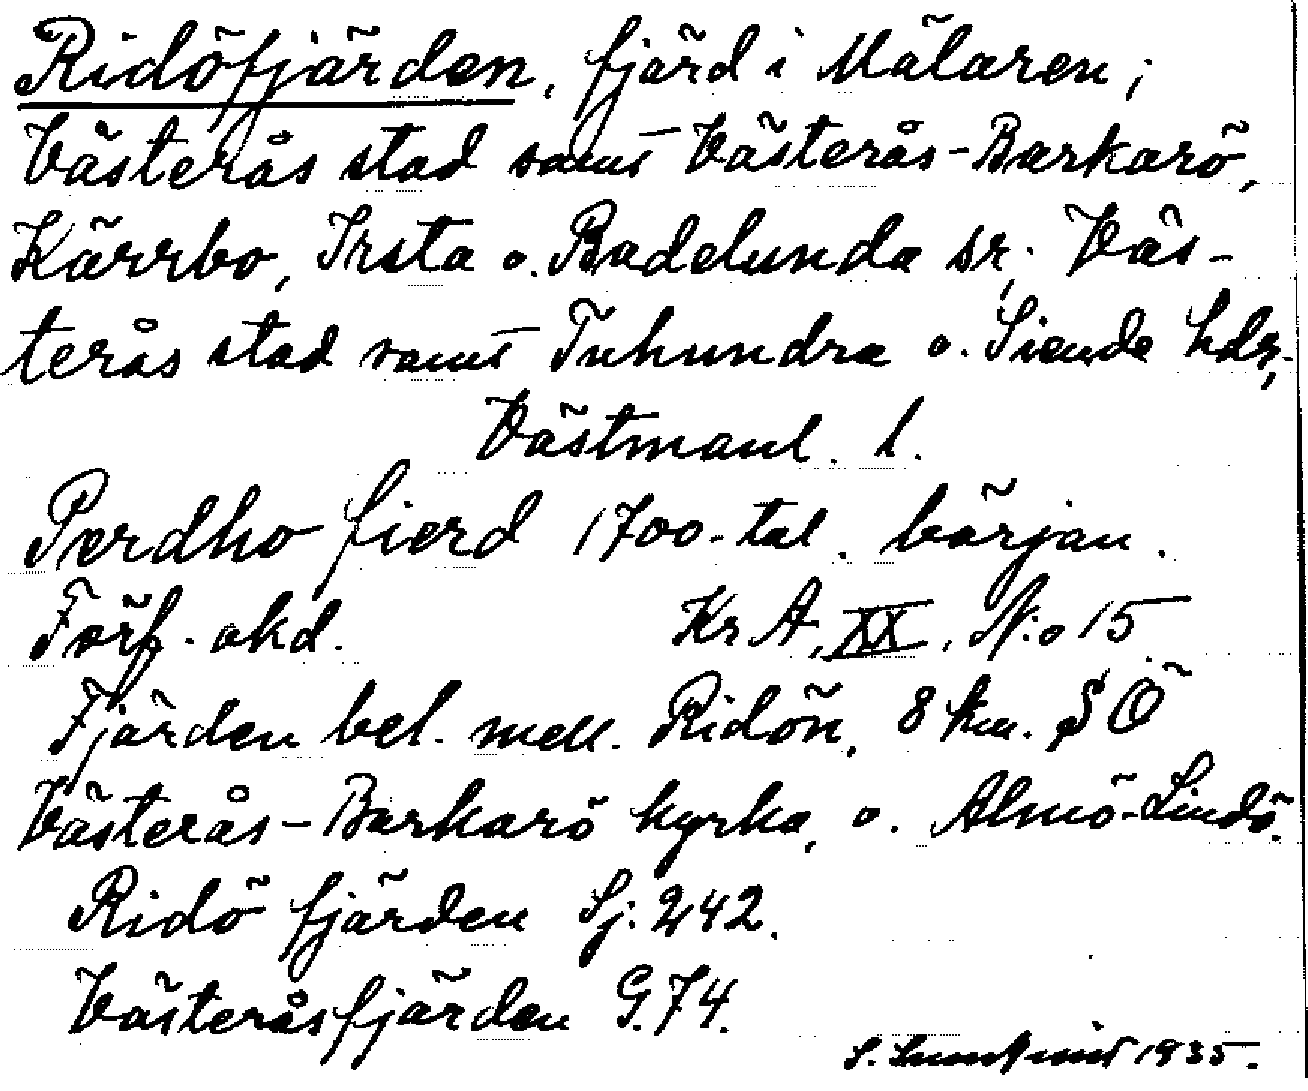 Ridöfjärden, fjärd i Mälaren;
Västerås stad samt Västerås-Barkarö,
Kärrbo, Irsta o. Badelunda sr; Väs-
terås stad samt Tuhundra o. Siende hdr,
Västmanl. l.
Perdho fierd 1700-tal. början.
Förf. okd. KrA, XX, N:o 15
Fjärden bel. mell. Ridön, 8 km. SÖ
Västerås-Barkarö kyrka, o. Almö-Lindö.
Ridö fjärden Sj. 242.
Västeråsfjärden G. 74.
S. 1935.